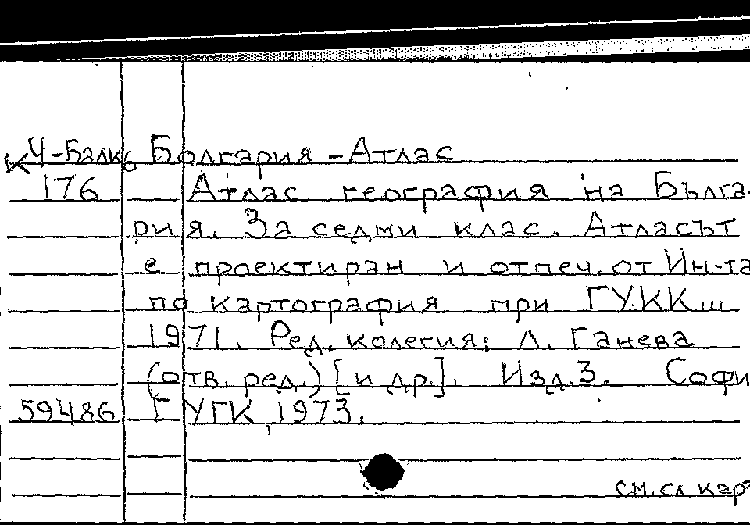 К Ч-Балк. Болгария - Атлас
176 Атлас география на Бълга-
рия. За седми клас. Атласът
е проектиран и отпеч. от Ин-та
по картография при ГУКК...
1971. Ред. колегия: Л. Ганева
(отв. ред.) [и др.]. Изд. 3. Софи
59486 ГУГК, 1973.
см. сл кар